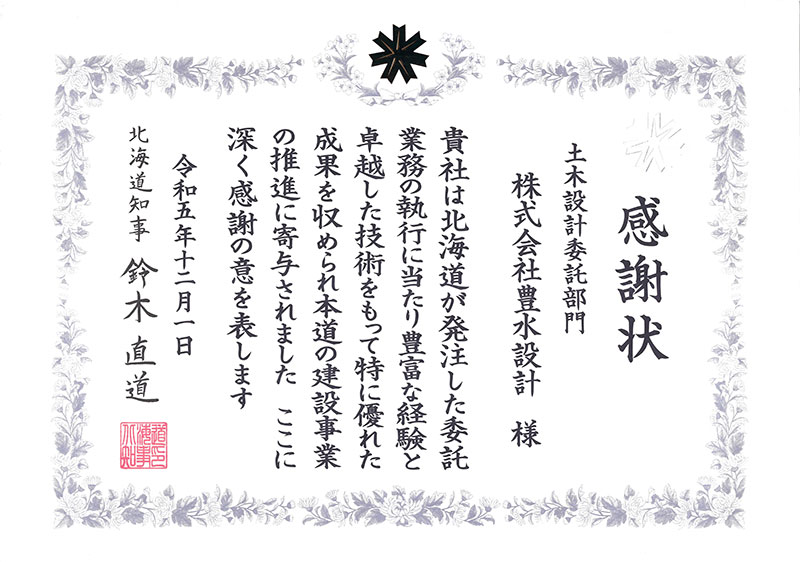 感謝状
土木設計委託部門
株式会社豊水設計 様
貴社は北海道が発注した委託
業務の執行に当たり豊富な経験と
卓越した技術をもって特に優れた
成果を収められ本道の建設事業
の推進に寄与されました ここに
深く感謝の意を表します
令和五年十二月一日
北海道知事 鈴木直道